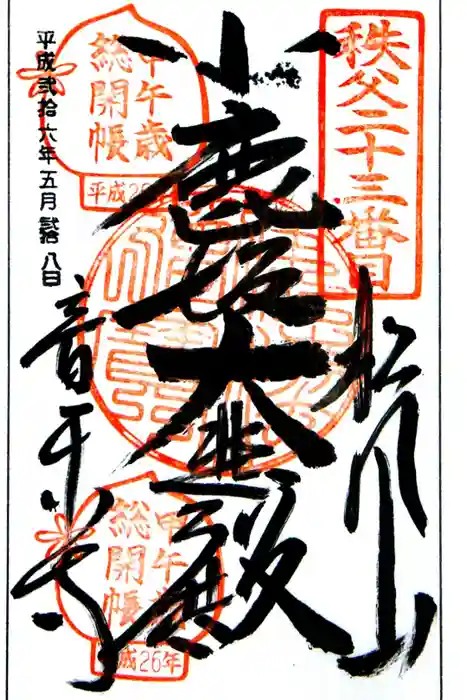 秩父二十三番
松風山
小鹿坂
大悲殿
音楽寺
平成弐拾六年五月弐拾八日
甲午歳
総開帳
平成26
甲午歳
総開帳
平成26年